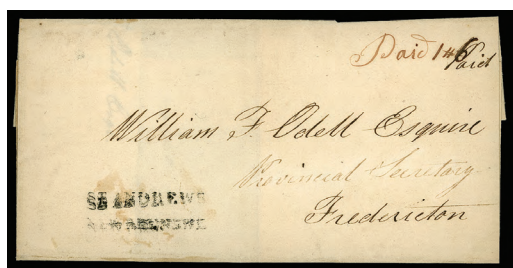 Paid 1/6 Paid
William F. Odell Esquire
Provincial Secretary
Fredericton
ST ANDREWS
NEW BRUNSWK